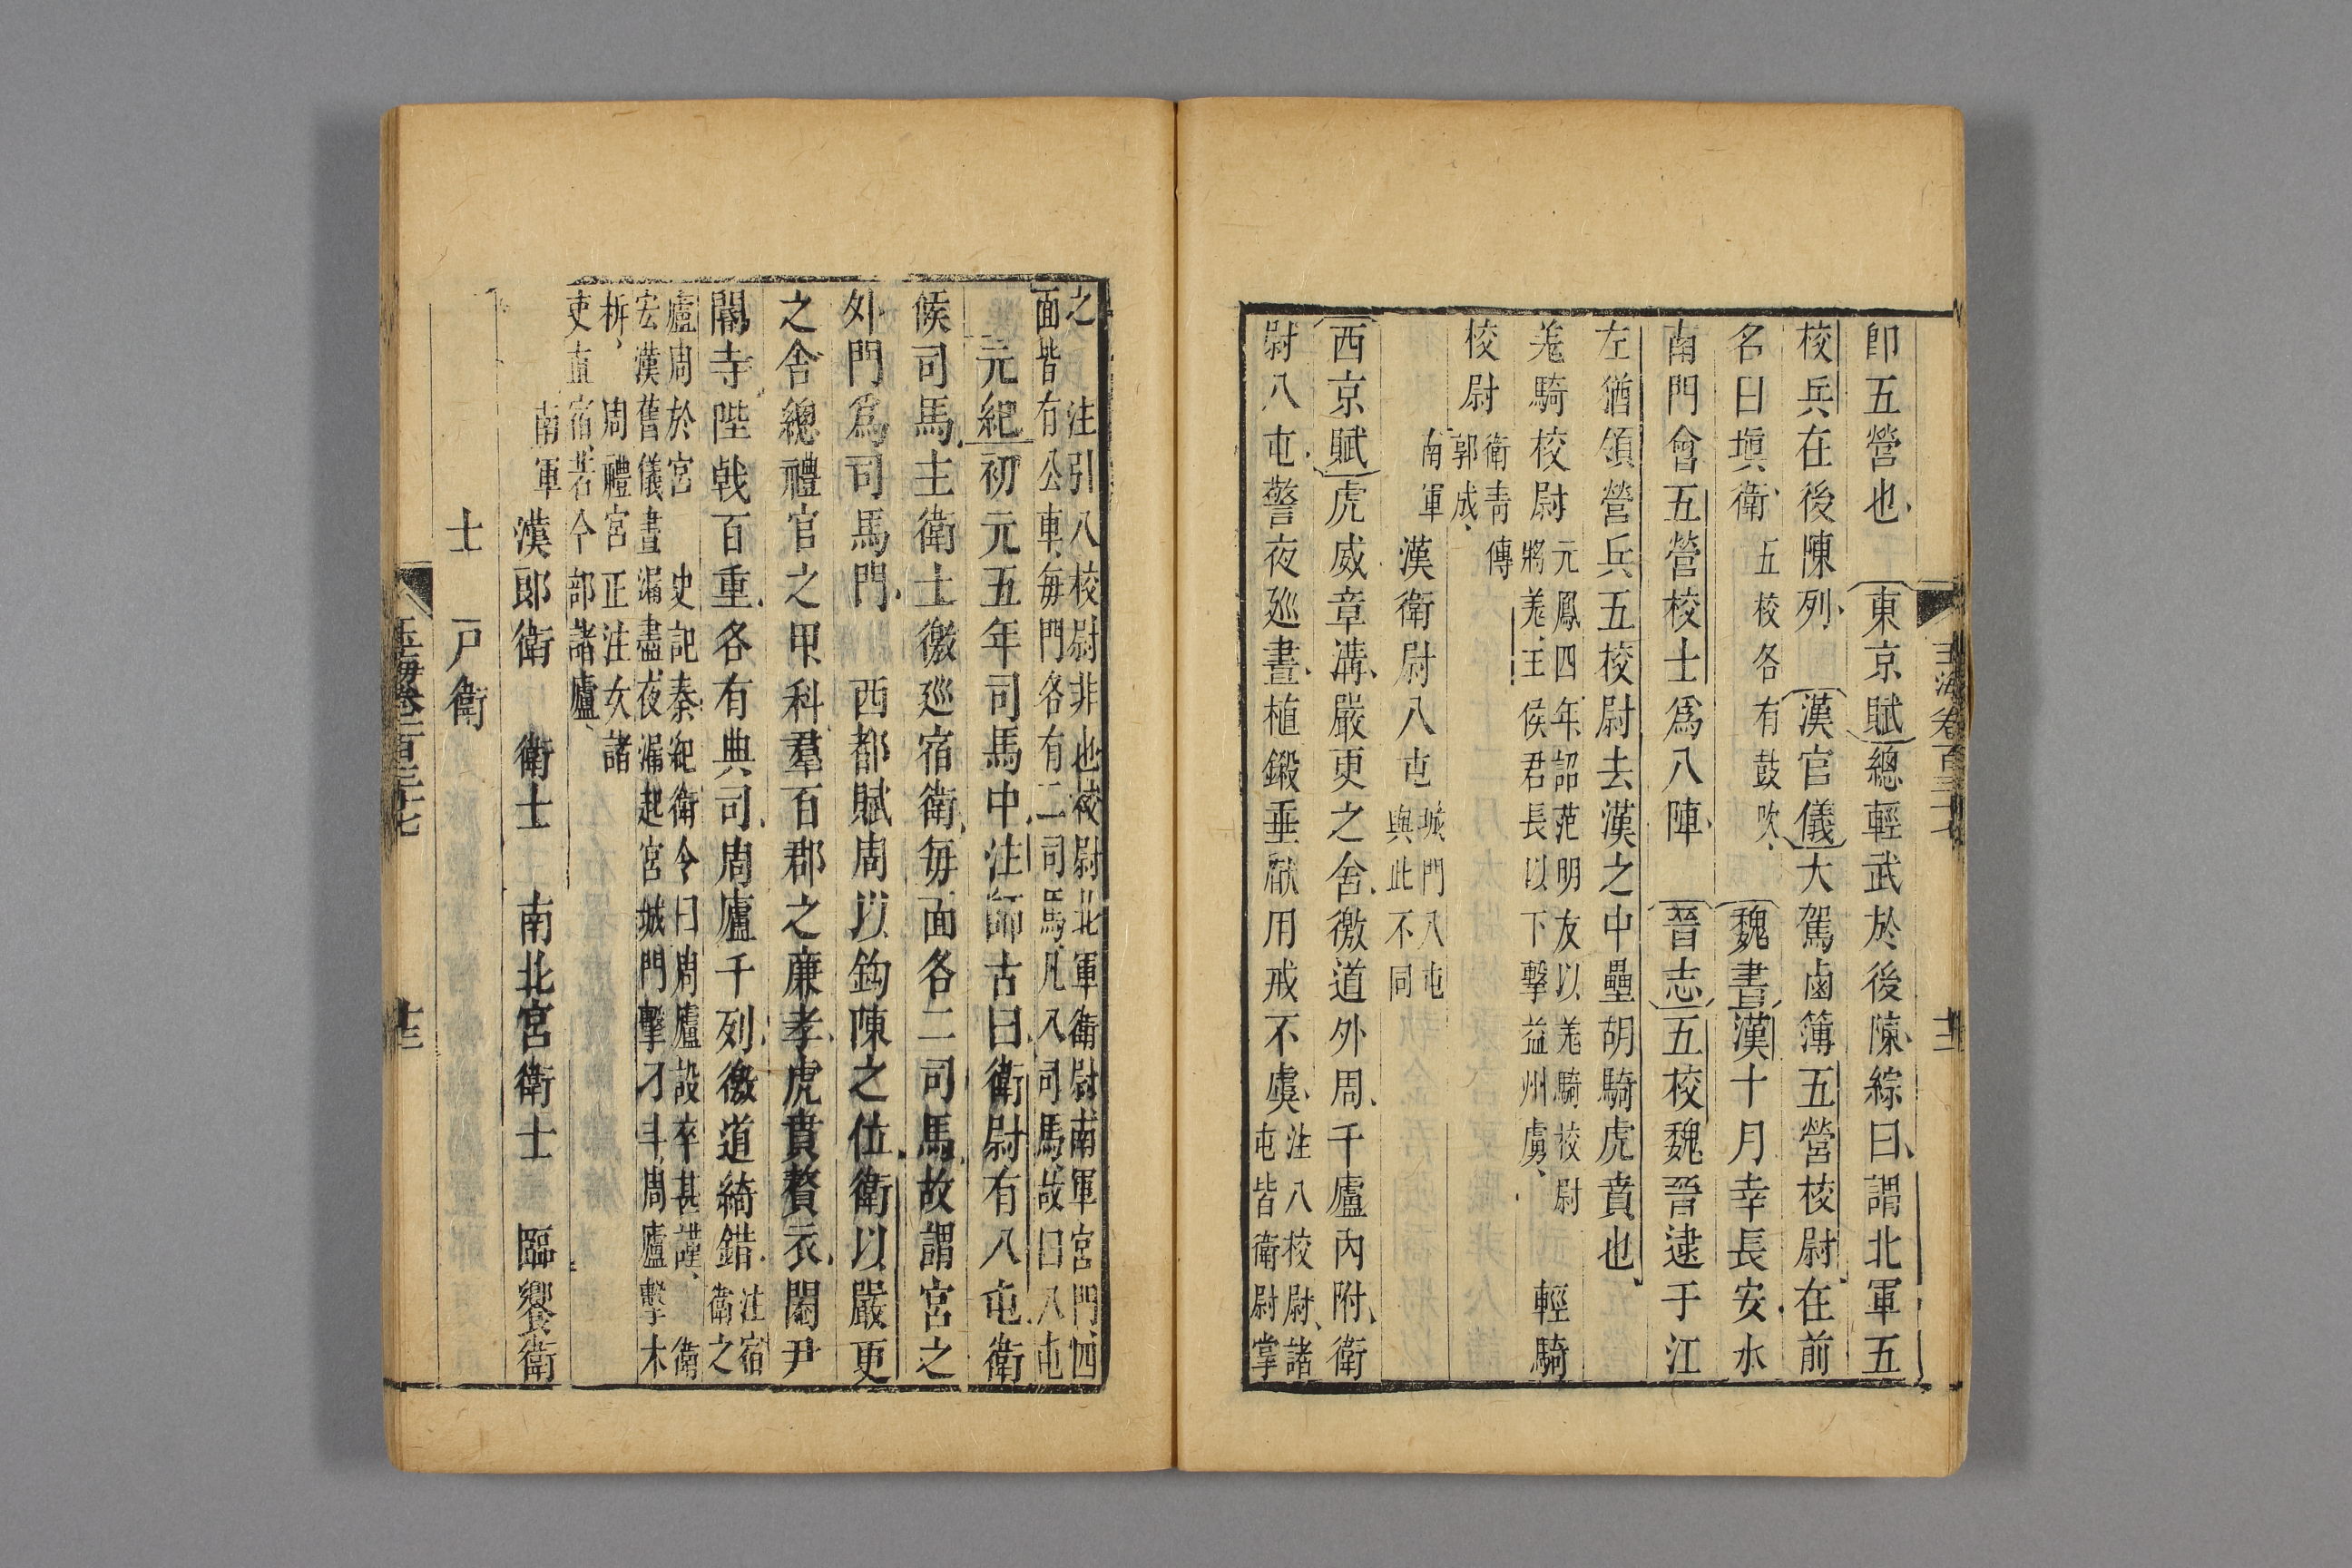 玉海卷百三十七 十二
卽五營也 東京賦總輕武於後陳綜曰謂北軍五
校兵在後陳列 漢官儀大駕鹵簿五營校尉在前
名曰塡衛 五校各有鼓吹 魏書漢十月幸長安水
南門會五營校士爲八陣 晉志五校魏晉逮于江
左猶領營兵五校尉去漢之中壘胡騎虎賁也
羗騎校尉 元鳳四年詔范明友以羗騎校尉
將羗王侯君長以下擊益州虜 輕騎
校尉 衛青傳
郭成
南軍 漢衛尉八屯 城門八屯
與此不同
西京賦虎威章溝嚴更之舍徼道外周千廬內附衛
尉八屯警夜廵晝植鎩垂瞂用戒不虞 注八校尉諸
屯皆衛尉掌
之 注引八校尉非也校尉北軍衛尉南軍宮門四
面皆有公車每門各有二司馬凡八司馬故曰八屯
元紀初元五年司馬中注師古曰衛尉有八屯衛
候司馬主衛士徼廵宿衛每面各二司馬故謂宮之
外門爲司馬門 西都賦周以鈎陳之位衛以嚴更
之舍總禮官之甲科羣百郡之廉孝虎賁贅衣閹尹
閽寺陛戟百重各有典司周廬千列徼道綺錯 注宿
衛之
廬周於宮 史記秦紀衛令曰周廬設卒甚謹 衛
宏漢舊儀晝漏盡夜漏起宮城門擊刁斗周廬擊木
柝 周禮宮正注女諸
吏直宿若今部諸廬
南軍 漢郎衛 衛士 南北宮衛士 臨饗衛
士 戸衛
玉海卷一百三十七 十三